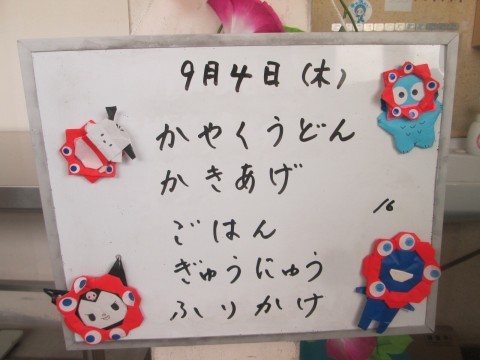 9月4日(木)
かやくうどん
かきあげ
16
ごはん
ぎゅうにゅう
ふりかけ